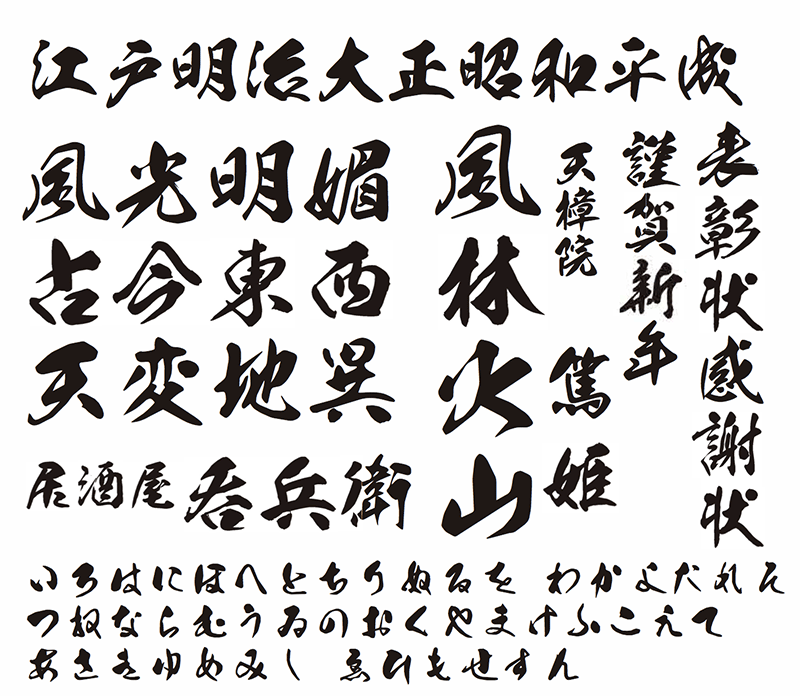 江戸明治大正昭和平成
風光明媚
古今東西
天変地異
居酒屋
呑兵衛
風林火山
天樟院
篤姫
謹賀新年
表彰状感謝状
いろはにほへとちりぬるを わかよたれそ
つねならむうゐのおくやまけふこえて
あさきゆめみし ゑひもせすん